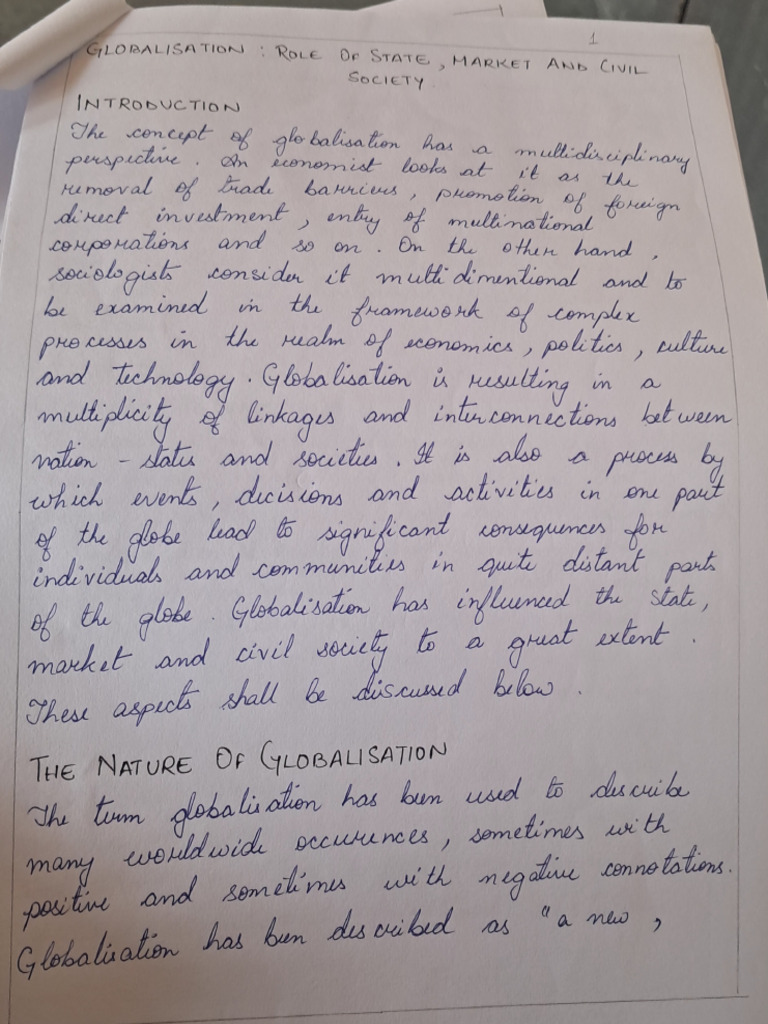 1
GLOBALISATION : ROLE OF STATE, MARKET AND CIVIL
SOCIETY.
INTRODUCTION
The concept of globalisation has a multidisciplinary
perspective. An economist looks at it as the
removal of trade barriers, promotion of foreign
direct investment, entry of multinational
corporations and so on. On the other hand,
sociologists consider it multi dimentional and to
be examined in the framework of complex
processes in the realm of economics, politics, culture
and technology. Globalisation is resulting in a
multiplicity of linkages and interconnections between
nation - states and societies. It is also a process by
which events, decisions and activities in one part
of the globe lead to significant consequences for
individuals and communities in quite distant parts
of the globe. Globalisation has influenced the state,
market and civil society to a great extent.
These aspects shall be discussed below.
THE NATURE OF GLOBALISATION
The term globalisation has been used to describe
many worldwide occurences, sometimes with
positive and sometimes with negative connotations.
Globalisation has been described as "a new,